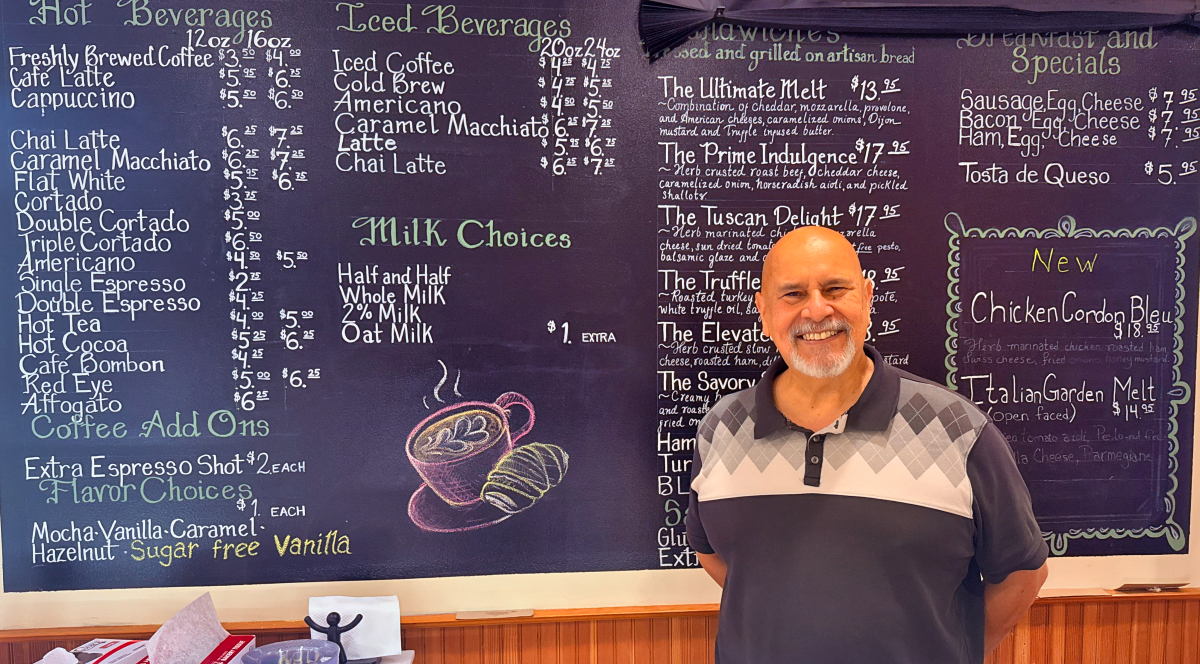 Hot Beverages
12oz 16oz
Freshly Brewed Coffee $3.50 $4.00
Café Latte $5.95 $6.75
Cappuccino $5.50 $6.50
Chai Latte $6.25 $7.25
Caramel Macchiato $6.25 $7.25
Flat White $5.95 $6.75
Cortado $3.75
Double Cortado $5.00
Triple Cortado $6.50
Americano $4.50 $5.50
Single Espresso $2.75
Double Espresso $4.25
Hot Tea $4.00 $5.00
Hot Cocoa $5.25 $6.25
Café Bombon $4.25
Red Eye $5.00 $6.25
Affogato $6.25
Coffee Add Ons
Extra Espresso Shot $2. EACH
Flavor Choices
$1. EACH
Mocha·Vanilla·Caramel·
Hazelnut · Sugar free Vanilla
Iced Beverages
20oz 24oz
Iced Coffee $4.25 $4.75
Cold Brew $4 $5
Americano $4.50 $5.50
Caramel Macchiato $6.25 $7.25
Latte $5.95 $6.75
Chai Latte $6.25 $7.25
Milk Choices
Half and Half
Whole Milk
2% Milk
Oat Milk $1. EXTRA
and grilled on artisan bread
The Ultimate Melt $13.95
~Combination of cheddar, mozzarella, provolone,
and American cheeses, caramelized onions, Dijon
mustard and Truffle infused butter.
The Prime Indulgence $17.95
~Herb crusted roast beef, cheddar cheese,
caramelized onion, horseradish aioli, and pickled
shallots.
The Tuscan Delight $17.95
~Herb marinated
cheese, sun dried free pesto,
balsamic glaze and
The Truffle .95
~Roasted turkey
white truffle oil,
The .95
~Herb crusted slow
cheese, roasted ham,
The Savory
~Creamy
and
Ham
BL
Breakfast and
Specials
Sausage, Egg, Cheese $7.95
Bacon, Egg, Cheese $7.95
Ham, Egg, Cheese $7.95
Tosta de Queso $5.95
New
Chicken Cordon Bleu
$18.95
Herb marinated chicken, roasted ham,
Swiss cheese, fried mustard
Italian Garden Melt
(open faced) $14.95
tomato aioli, Pesto-nut free
Cheese, Parmegiane